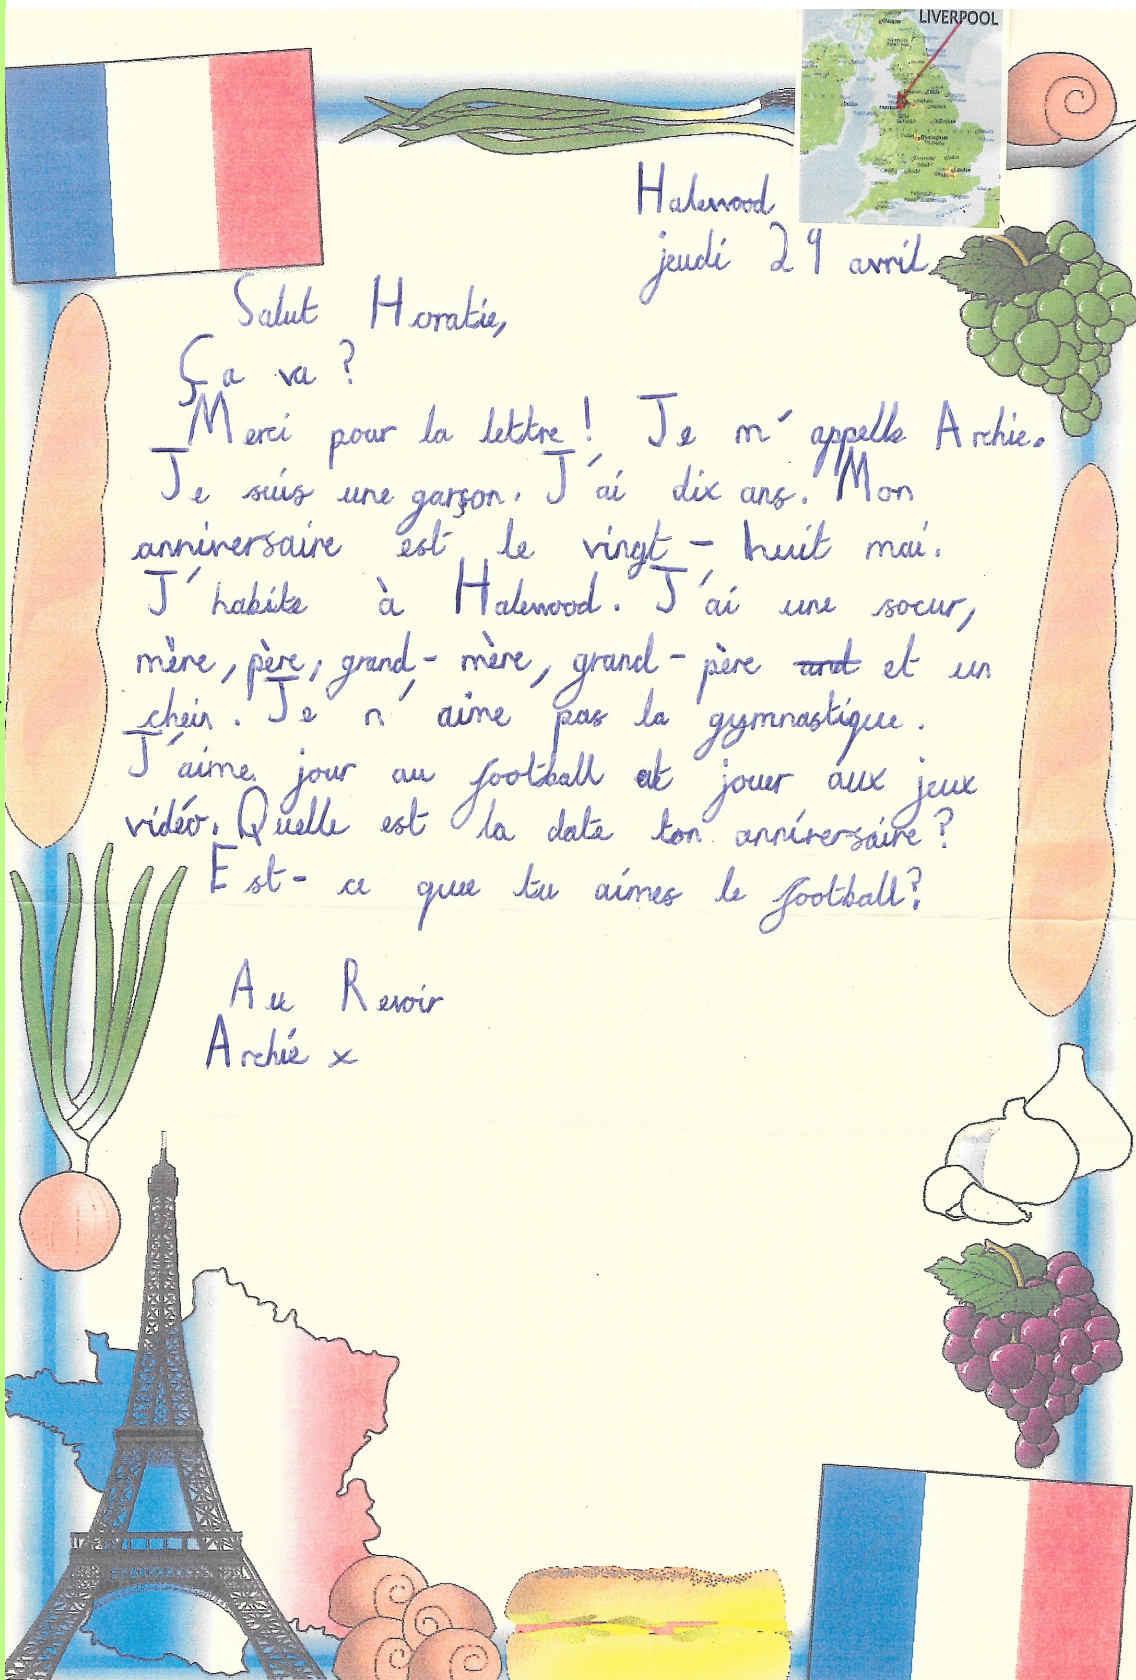 LIVERPOOL
Halewood
jeudi 29 avril
Salut Horatie,
Ça va ?
Merci pour la lettre ! Je m'appelle Archie.
Je suis une garşon. J'ai dix ans. Mon
anniversaire est le vingt - huit mai.
J'habite à Halewood. J'ai une soeur,
mère, père, grand- mère, grand - père and et un
chein. Je n'aime pas la gymnastique.
J'aime jour au football et jouer aux jeux
vidéo. Quelle est la date ton anniversaire ?
Est- ce que tu aimes le football?
Au Revoir
Archie x